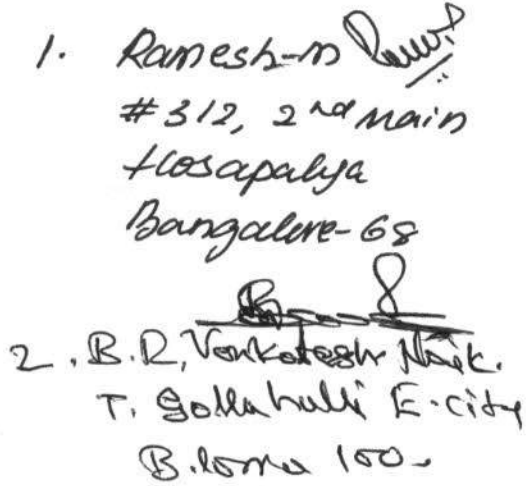 1. Ramesh-m
#312, 2nd Main
Hosapalya
Bangalore-68
2. B.R. Venkatesh Naik.
T. Gollahalli E-city
100